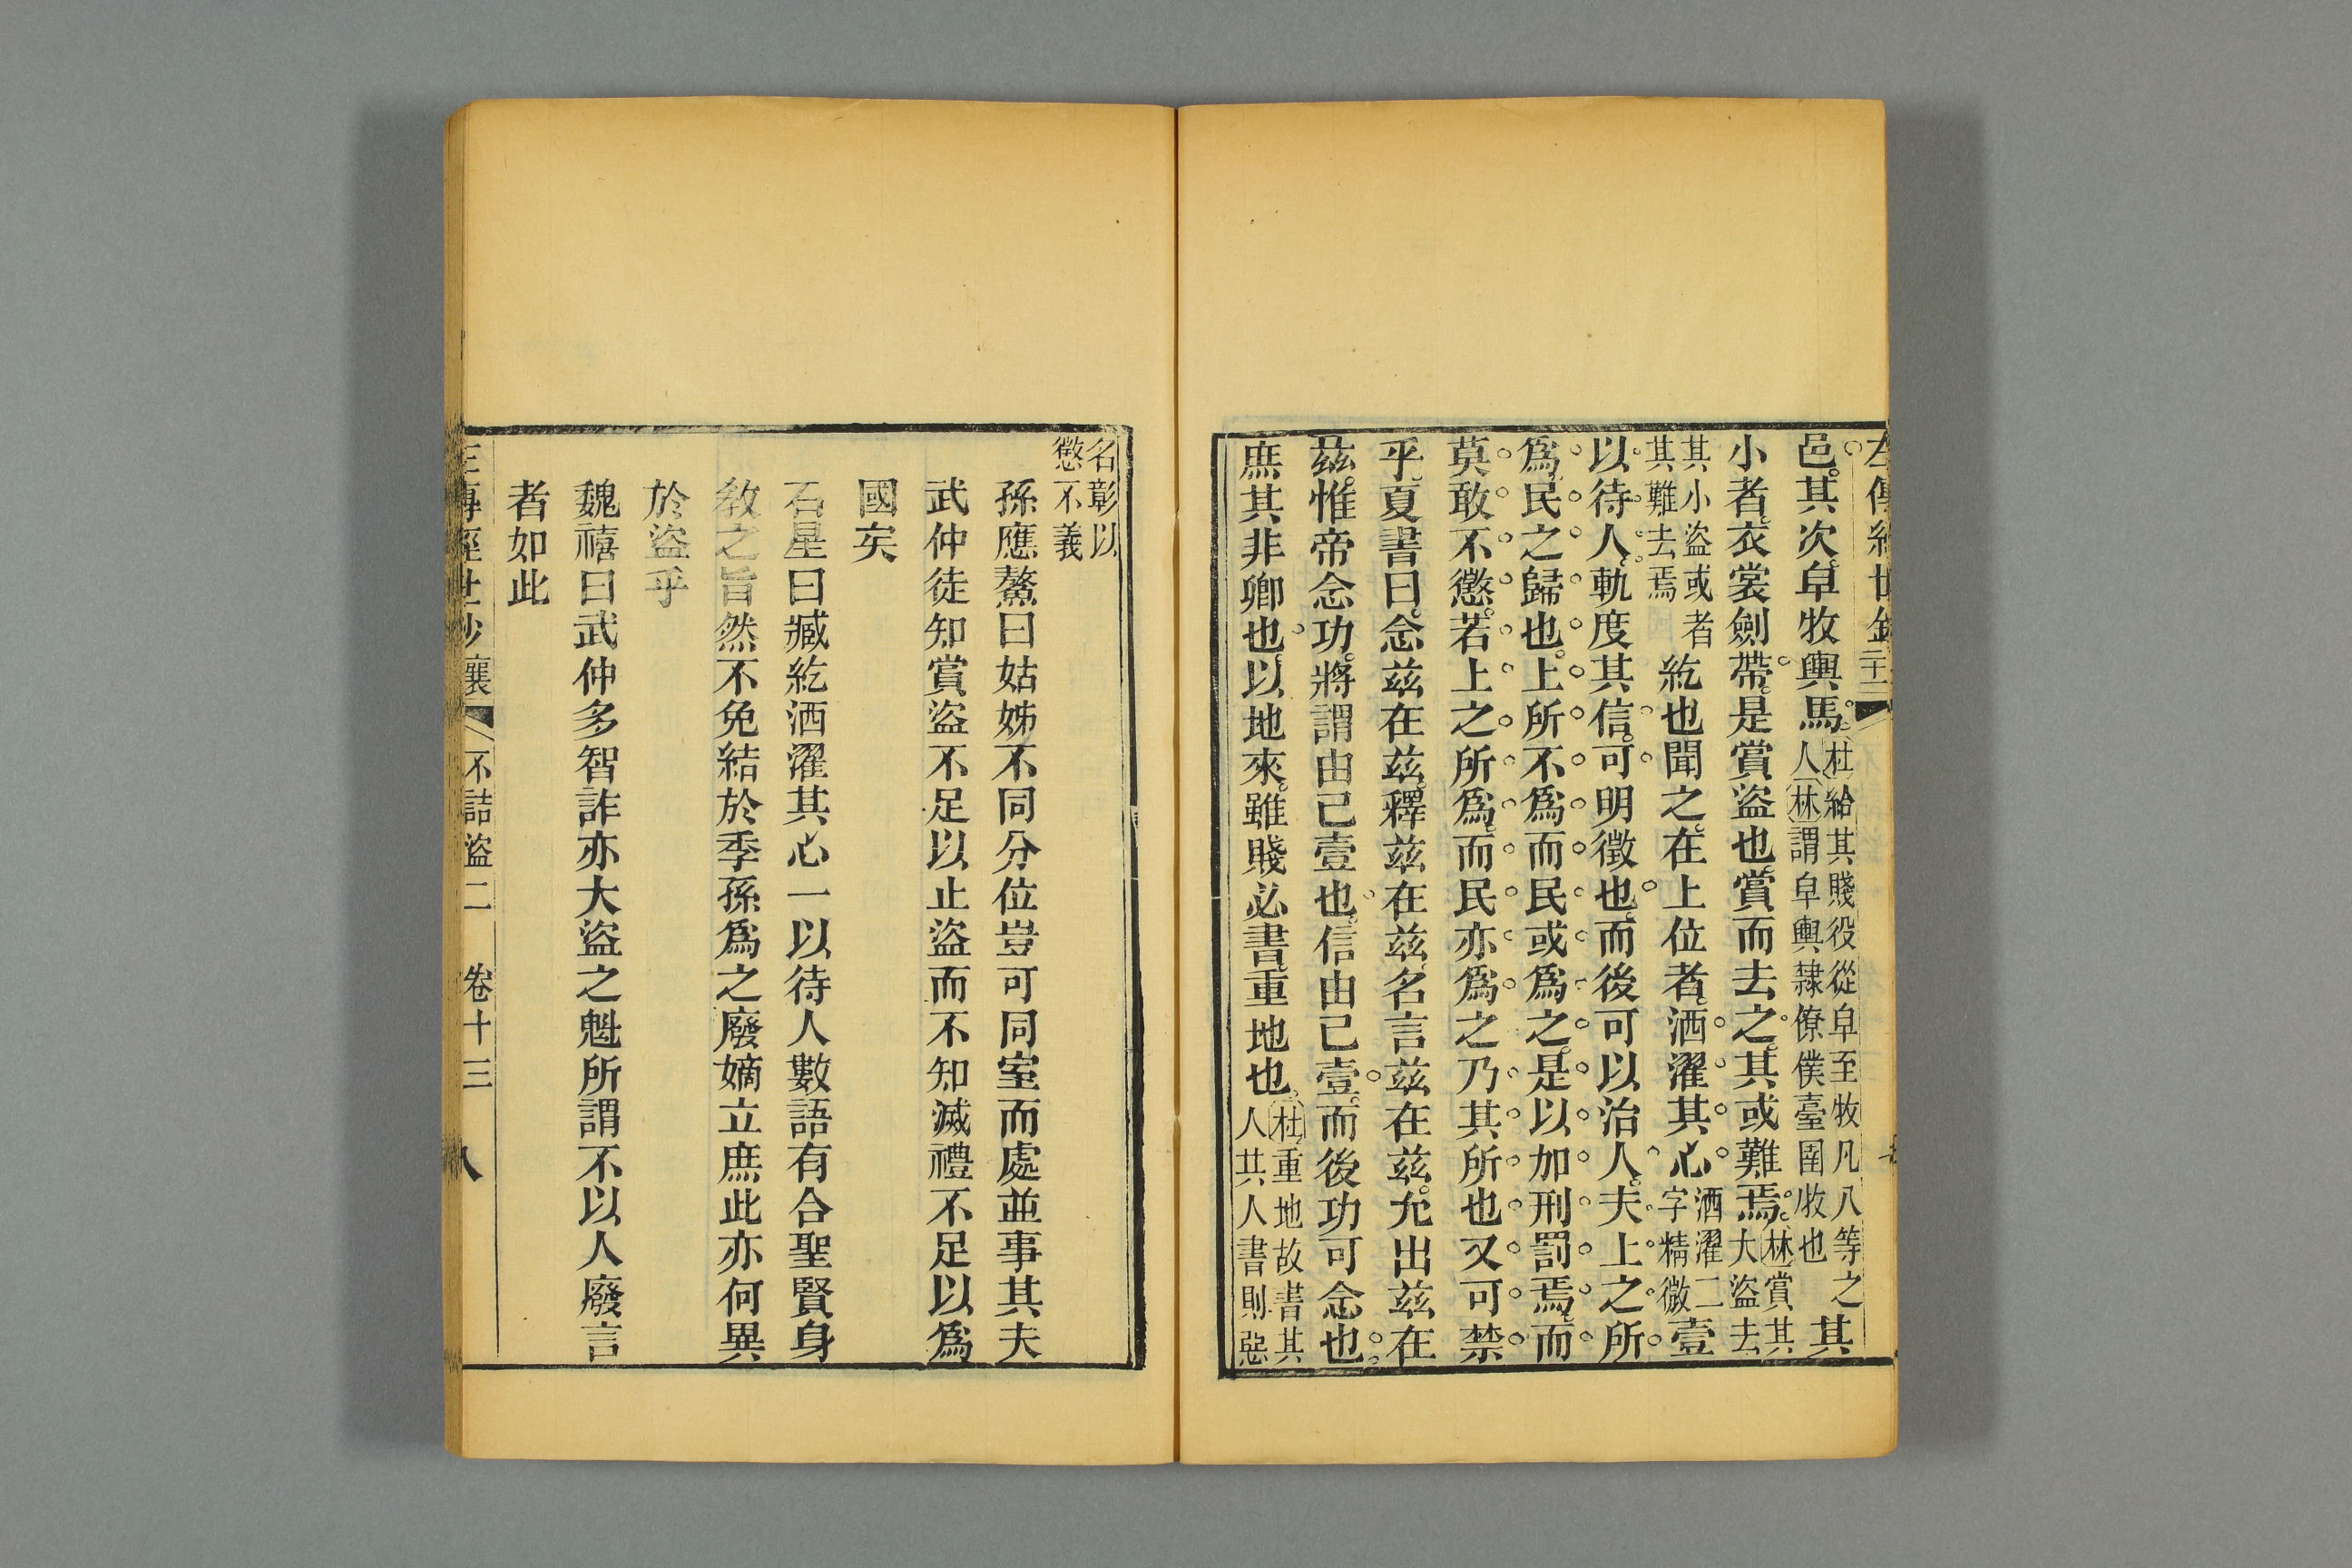 邑其次皁牧輿馬杜給其賤役從皁至牧凡八等之人林謂皁輿隸僚僕臺圉牧也其
小者衣裳劍帶是賞盜也賞而去之其或難焉林賞其大盜去
其小盜或者其難去焉紇也聞之在上位者洒濯其心洒濯二字精微壹
以待人軌度其信可明徵也而後可以治人夫上之所
爲民之歸也上所不爲而民或爲之是以加刑罰焉而
莫敢不懲若上之所爲而民亦爲之乃其所也又可禁
乎夏書曰念茲在茲釋茲在茲名言茲在茲允出茲在
茲惟帝念功將謂由己壹也信由己壹而後功可念也
庶其非卿也以地來雖賤必書重地也杜重地故書其人其人書則惡
名彰以懲不義
孫應鰲曰姑姊不同分位豈可同室而處並事其夫
武仲徒知賞盜不足以止盜而不知滅禮不足以爲
國矣
石星曰臧紇洒濯其心一以待人數語有合聖賢身
教之旨然不免結於季孫爲之廢嫡立庶此亦何異
於盜乎
魏禧曰武仲多智詐亦大盜之魁所謂不以人廢言
者如此
左傳經世鈔襄 不詰盜二 卷十三 八